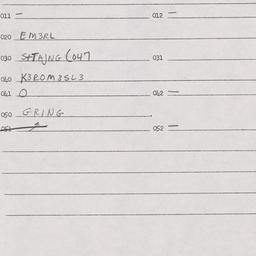 011 – 012 –
020 EM3RL
030 S+TAJNG (047 031
060 K3ROM3SL3
061 O 062 –
050 GRING
051 052 –